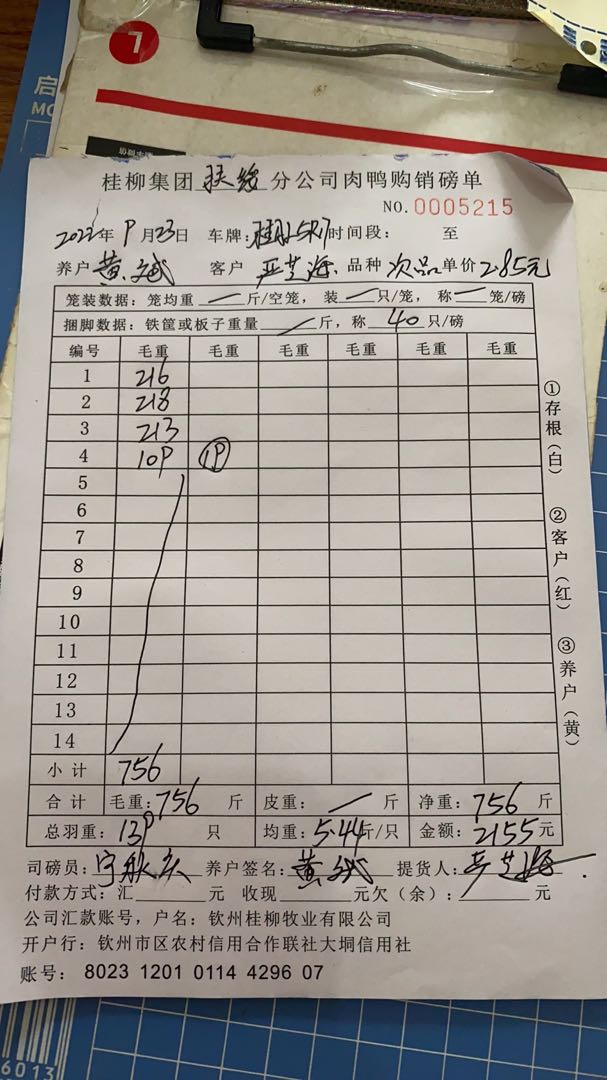 7
启
桂柳集团 扶绥 分公司肉鸭购销磅单
NO.0005215
2022年 9月23日 车牌: 时间段: 至
养户 黄斌 客户 严芝海 品种 次品 单价 2.85元
笼装数据: 笼均重 / 斤/空笼, 装 / 只/笼, 称 / 笼/磅
捆脚数据: 铁筐或板子重量 / 斤, 称 40 只/磅
编号 毛重 毛重 毛重 毛重 毛重
1 216
2 218
3 213
4 109 19
5
6
7
8
9
10
11
12
13
14
小计 756
合计 毛重: 756 斤 皮重: / 斤 净重: 756 斤
总羽重: 139 只 均重: 5.44斤/只 金额: 2155元
司磅员: 养户签名: 黄斌 提货人: 严芝海
付款方式: 汇 元 收现 元欠(余): 元
公司汇款账号, 户名: 钦州桂柳牧业有限公司
开户行: 钦州市区农村信用合作联社大垌信用社
账号: 8023 1201 0114 4296 07
①存根(白)
②客户(红)
③养户(黄)
6013